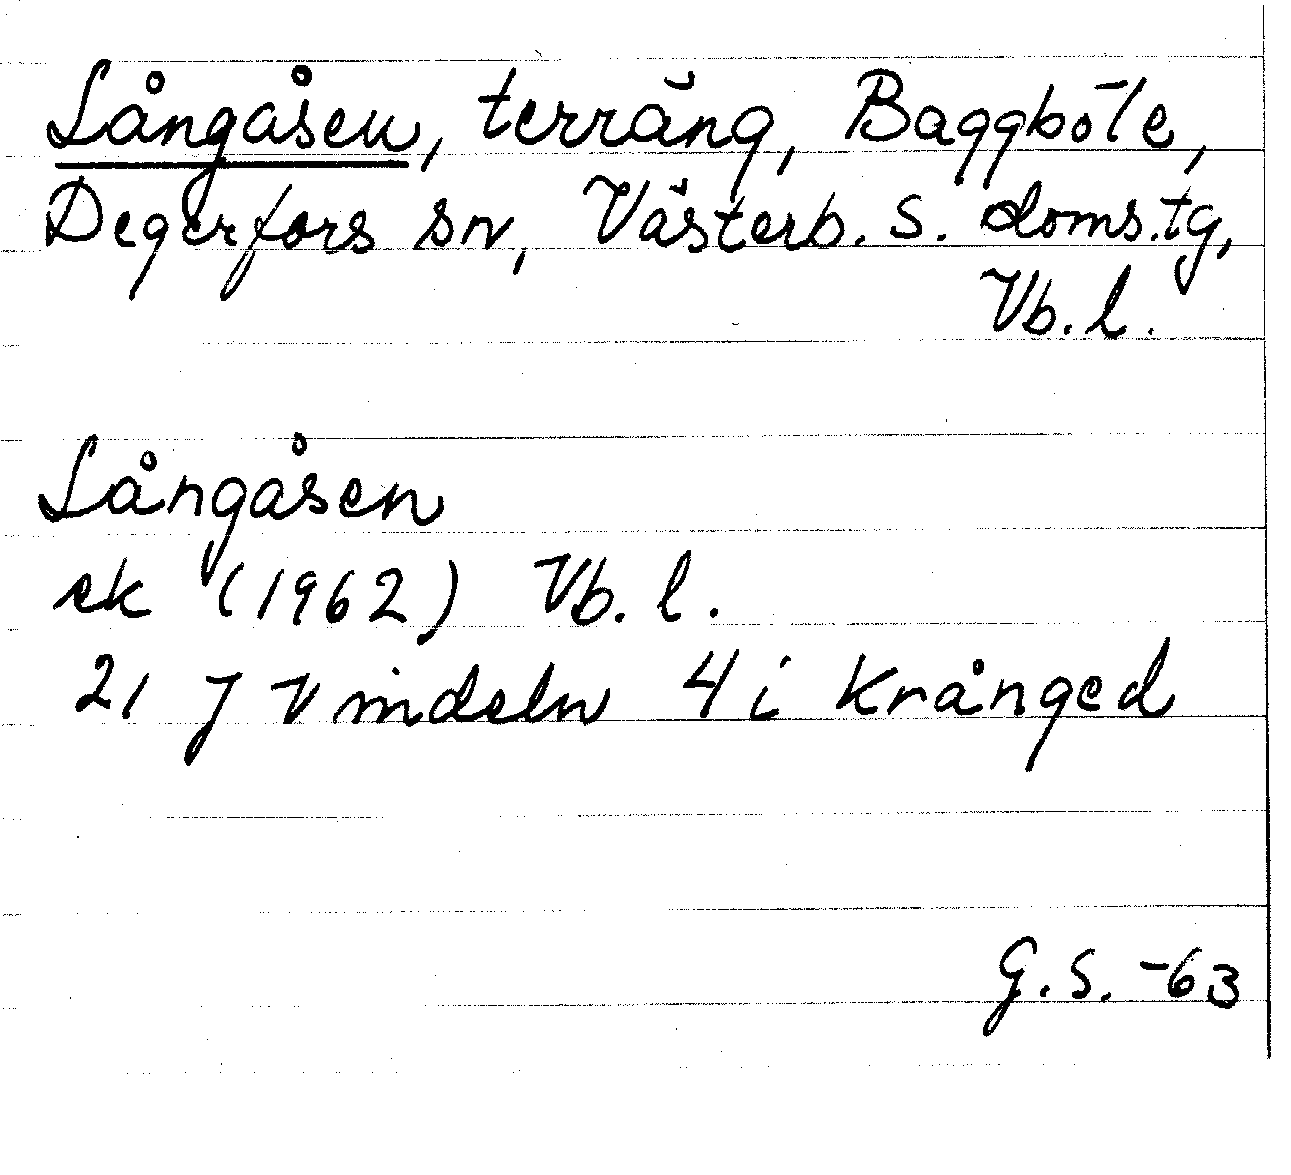 Långåsen, terräng, Baggböle,
Degerfors sn, Västerb. S. doms.tg,
Vb. l.
Långåsen
ek (1962) Vb. l.
21 J Vindeln 4 i Krånged
G.S. -63